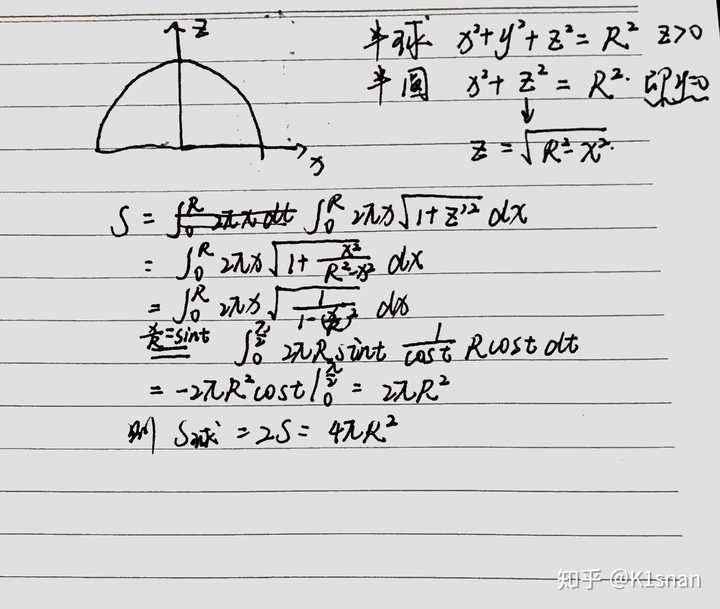 z
半球 x²+y²+z²=R² z>0
半圆 x²+z²=R². 即y=0
↓
z=√(R²-x²).
x
S = ∫₀ᴿ 2πx√(1+z'²) dx
= ∫₀ᴿ 2πx√(1+x²/(R²-x²)) dx
= ∫₀ᴿ 2πx√(1/(1-(x/R)²)) dx
x/R=sint ∫₀^(π/2) 2πR sint (1/cost) Rcost dt
= -2πR²cost|₀^(π/2) = 2πR²
则 S球 = 2S = 4πR²
知乎 @K1snan